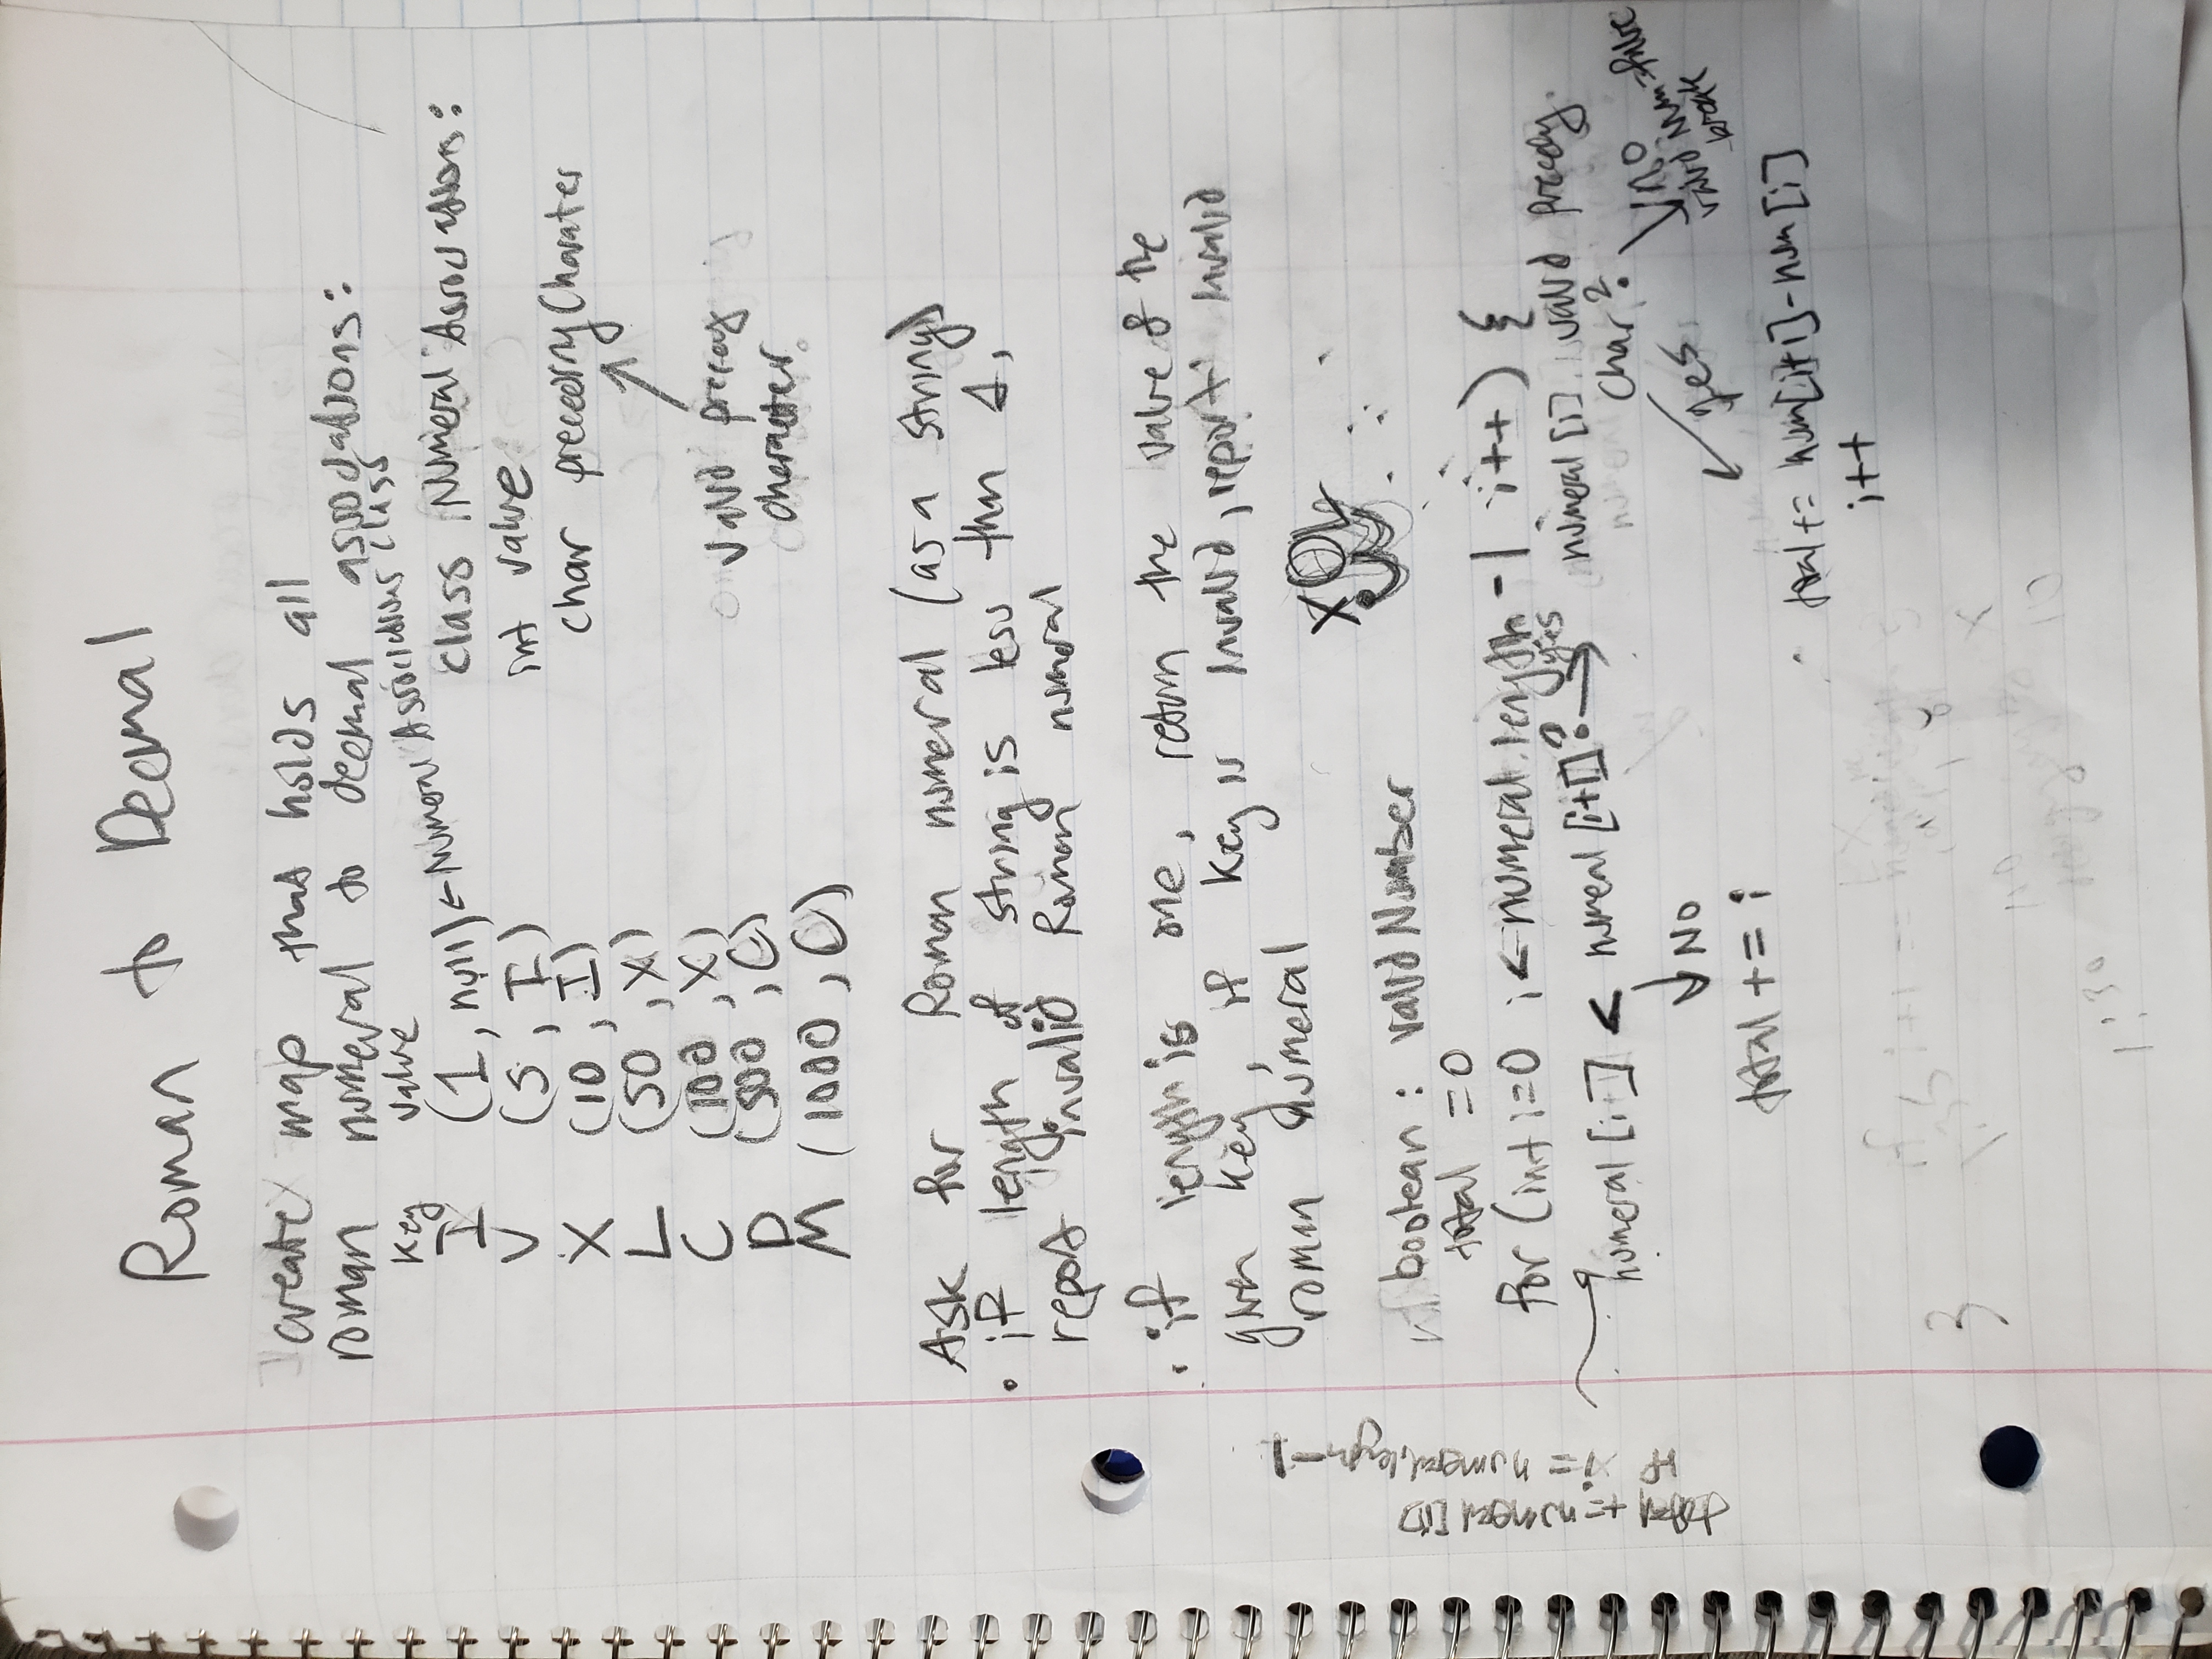 Roman to Decimal
create map that holds all
roman numeral to decimal associations:
Key value
I (1, null) ← Numeral Associations class
V (5, I)
X (10, I)
L (50, X)
C (100, X)
D (500, C)
M (1000, C)
class Numeral Associations:
int value
char preceedingCharater
valid preceding
character.
Ask for Roman numeral (as a string)
• if length of string is less than 1,
report invalid Roman numeral
• if length is one, return the value of the
given key, if key is invalid, report invalid
roman numeral
boolean: valid Number
total = 0
for (int i=0 i < numeral.length -1 i++) {
numeral [i] < numeral [i+1]? → yes numeral [i] valid preceding
char?
↓ No
total += i
yes
total += num[i+1] - num [i]
i++
no
valid Num = false
break
}
total += numeral [i]
if i = numeral.length-1
1:30